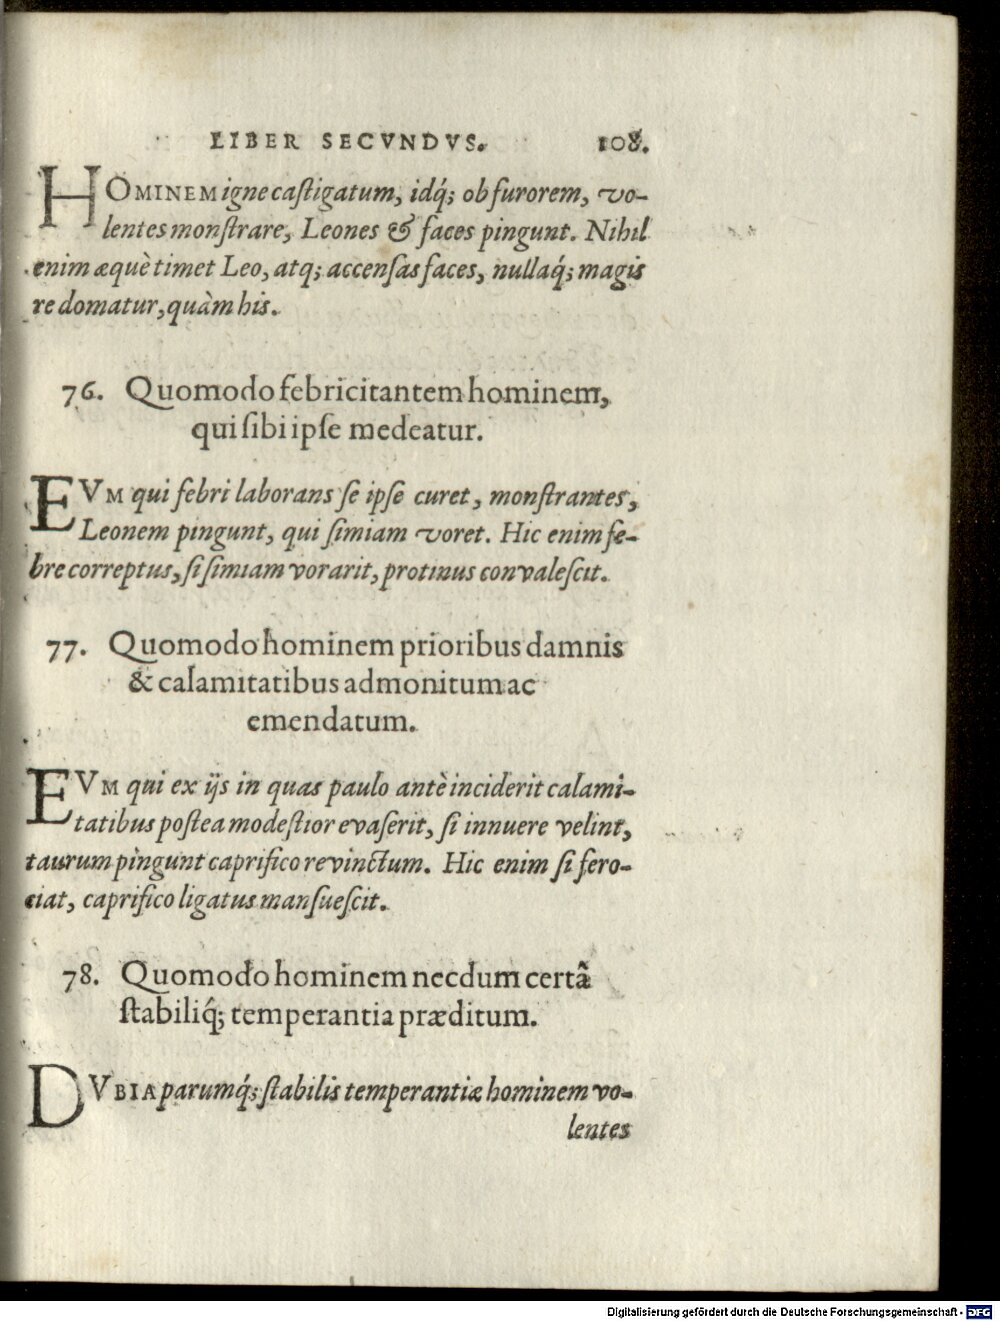 LIBER SECVNDVS. 108.
HOMINEM igne castigatum, idq́; ob furorem, vo-
lentes monstrare, Leones & faces pingunt. Nihil
enim æquè timet Leo, atq; accensas faces, nullaq́; magis
re domatur, quàm his.
76. Quomodo febricitantem hominem,
qui sibi ipse medeatur.
EVM qui febri laborans se ipse curet, monstrantes,
Leonem pingunt, qui simiam voret. Hic enim fe-
bre correptus, si simiam vorarit, protinus convalescit.
77. Quomodo hominem prioribus damnis
& calamitatibus admonitum ac
emendatum.
EVM qui ex ijs in quas paulo antè inciderit calami-
tatibus postea modestior evaserit, si innuere velint,
taurum pingunt caprifico revinctum. Hic enim si fero-
ciat, caprifico ligatus mansuescit.
78. Quomodo hominem necdum certâ
stabiliq́; temperantia præditum.
DVBIA parumq́; stabilis temperantiæ hominem vo-
lentes
Digitalisierung gefördert durch die Deutsche Forschungsgemeinschaft - DFG